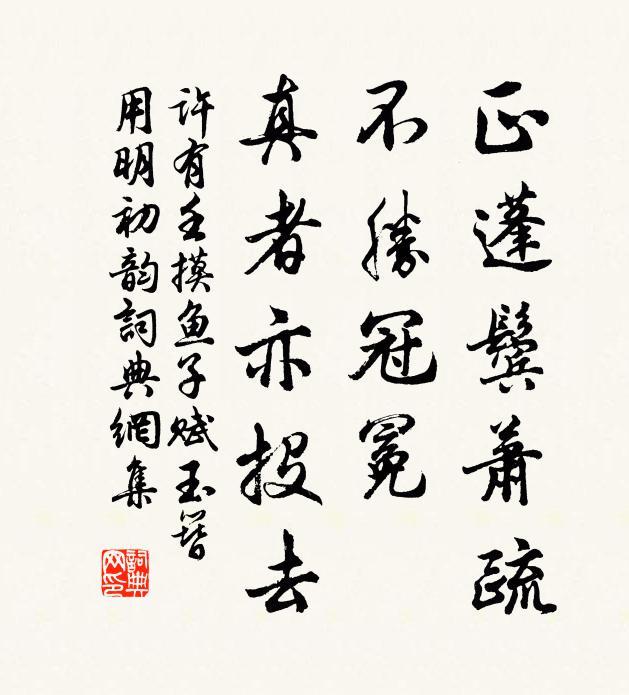 正蓬鬓萧疏
不勝冠冕
真者亦投去
许有壬摸鱼子赋玉簪
用明初韵詞典網集
詞典网印